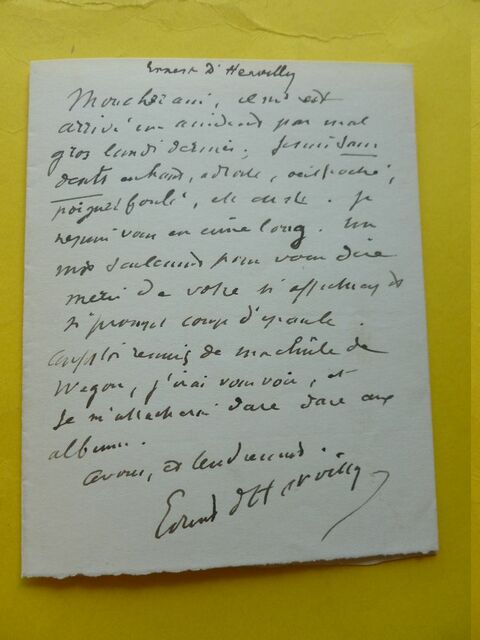 Ernest d'Hervilly
Mon cher ami, il m'est
arrivé un accident pas mal
gros lundi dernier. Je suis sans
dents en haut, à droite, oeil poché,
poignet foulé, etc. Je
ne puis vous en écrire long. Un
mot seulement pour vous dire
merci de votre si affectueux et
si prompt coup d'épaule.
remis de ma chûte de
Wagon, j'irai vous voir, et
je m'attacherai dare dare aux
albums.
à vous, et tendrement.
Ernest d'Hervilly